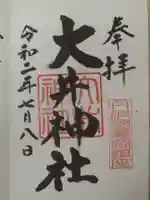 奉拝
大井神社
令和二年七月八日